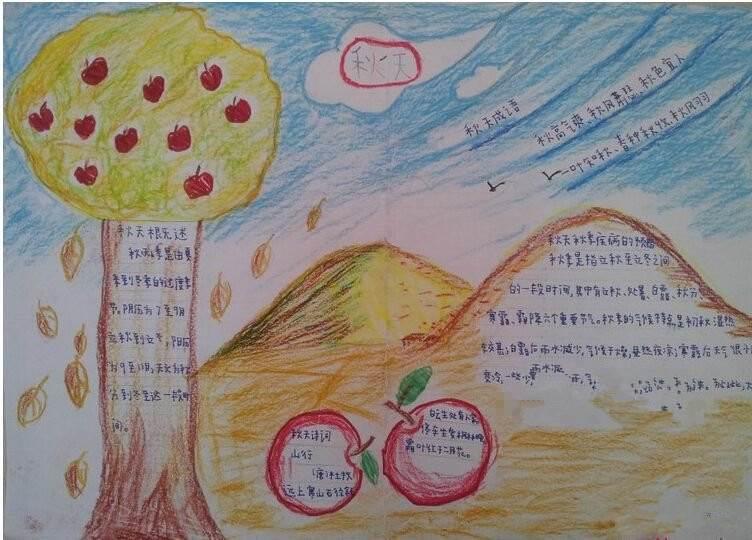 秋天
秋天成语
秋高气爽、秋风萧瑟、秋色宜人
一叶知秋、春种秋收、秋风习习
秋天概述
秋天季是由夏
季到冬季的过渡季
节,阴历为了至明
立秋到立冬,阳历
为9至11月,天文为秋
分到冬至这一段时
间。
秋天秋季疾病的预防
秋季是指立秋至立冬之间
的一段时间,其中有立秋、处暑、白露、秋分
寒露、霜降六个重要节气。秋季的气候特点是初秋湿热
较甚;白露后雨水减少,气候干燥,昼热夜凉;寒露后天气
变冷,一些
雨水减
秋天诗词
山行
(唐)杜牧
远上寒山石径斜
白云生处有人家。
停车坐爱枫林晚
霜叶红于二月花。